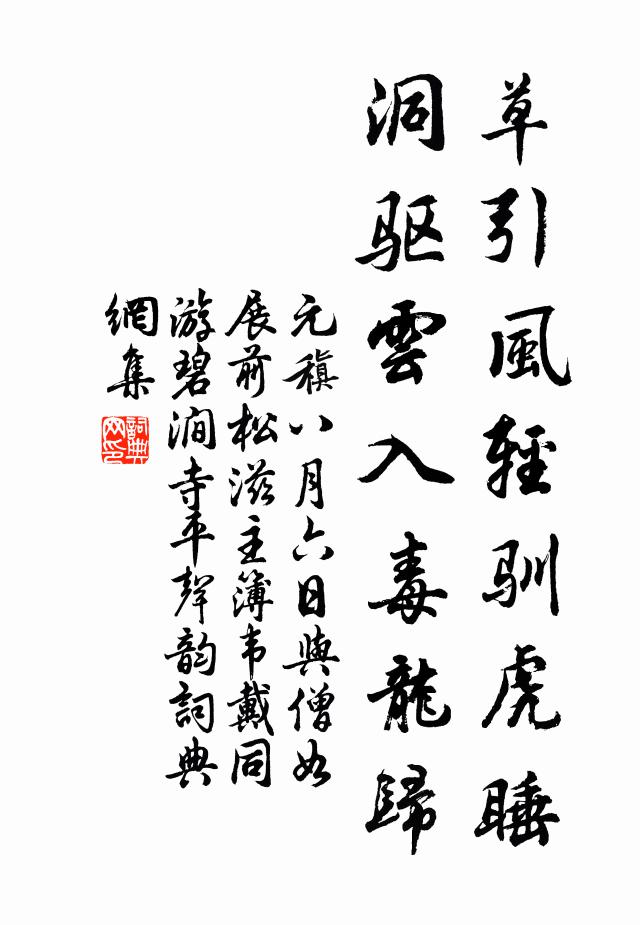 草引風輕馴虎睡
洞驱雲入毒龍歸
元稹八月六日與僧如
展前松滋主簿韦戴同
游碧澗寺平聲韵詞典
網集
詞典
网印